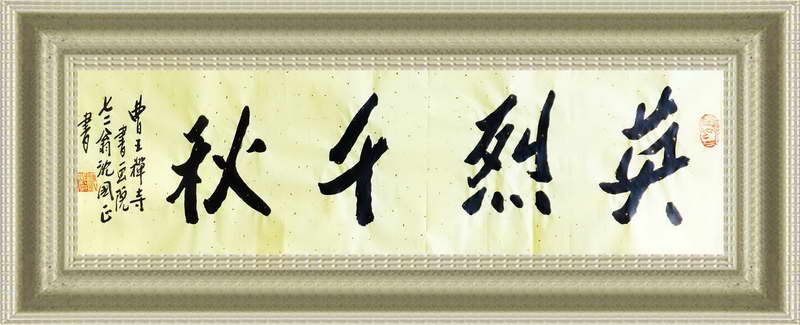 英烈千秋
曹王禅寺
书画院
七二翁沈国正
书